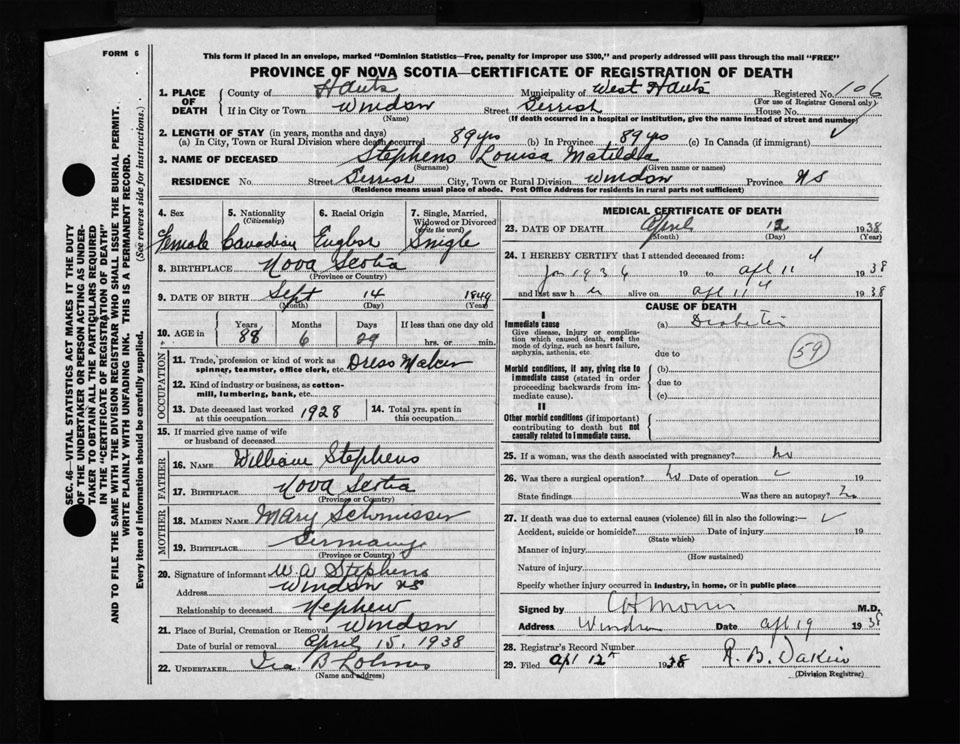 FORM 6
This form if placed in an envelope, marked "Dominion Statistics—Free, penalty for improper use $300," and properly addressed will pass through the mail "FREE"
PROVINCE OF NOVA SCOTIA—CERTIFICATE OF REGISTRATION OF DEATH
1. PLACE OF DEATH
County of Hants Municipality of West Hants Registered No. 106
(For use of Registrar General only)
If in City or Town Windsor Street Gerrish House No.
(Name) (If death occurred in a hospital or institution, give the name instead of street and number)
2. LENGTH OF STAY (in years, months and days)
(a) In City, Town or Rural Division where death occurred 89 yrs (b) In Province 89 yrs (c) In Canada (if immigrant)
3. NAME OF DECEASED Stephens Louisa Matilda
(Surname) (Given name or names)
RESIDENCE No. Street Gerrish City, Town or Rural Division Windsor Province NS
(Residence means usual place of abode. Post Office Address for residents in rural parts not sufficient)
4. Sex 5. Nationality (Citizenship) 6. Racial Origin 7. Single, Married, Widowed or Divorced (write the word)
Female Canadian English Single
8. BIRTHPLACE Nova Scotia
(Province or Country)
9. DATE OF BIRTH Sept 14 1849
(Month) (Day) (Year)
10. AGE in Years Months Days If less than one day old
88 6 29 hrs. or min.
OCCUPATION
11. Trade, profession or kind of work as spinner, teamster, office clerk, etc. Dress Maker
12. Kind of industry or business, as cotton-mill, lumbering, bank, etc.
13. Date deceased last worked at this occupation 1928 14. Total yrs. spent in this occupation
15. If married give name of wife or husband of deceased
FATHER
16. NAME William Stephens
17. BIRTHPLACE Nova Scotia
(Province or Country)
MOTHER
18. MAIDEN NAME Mary
19. BIRTHPLACE Germany
(Province or Country)
20. Signature of informant W. A Stephens
Address Windsor NS
Relationship to deceased Nephew
21. Place of Burial, Cremation or Removal Windsor
Date of burial or removal April 15, 1938
22. UNDERTAKER B
(Name and address)
MEDICAL CERTIFICATE OF DEATH
23. DATE OF DEATH April 12 1938
(Month) (Day) (Year)
24. I HEREBY CERTIFY that I attended deceased from:
Jan 1936 19 to apl 11 1938
and last saw h er alive on apl 11 1938
CAUSE OF DEATH
I
Immediate cause
Give disease, injury or complication which caused death, not the mode of dying, such as heart failure, asphyxia, asthenia, etc.
(a) Diabetes
59
due to
Morbid conditions, if any, giving rise to immediate cause (stated in order proceeding backwards from immediate cause).
(b)
due to
(c)
II
Other morbid conditions (if important) contributing to death but not causally related to immediate cause.
25. If a woman, was the death associated with pregnancy? no
26. Was there a surgical operation? no Date of operation 19
State findings Was there an autopsy? no
27. If death was due to external causes (violence) fill in also the following:—
Accident, suicide or homicide? Date of injury 19
(State which)
Manner of injury
(How sustained)
Nature of injury
Specify whether injury occurred in industry, in home, or in public place
Signed by M.D.
Address Windsor Date apl 19 1938
28. Registrar's Record Number
29. Filed Apl 12 1938 R. B. Dakin
(Division Registrar)
SEC. 46—VITAL STATISTICS ACT MAKES IT THE DUTY
OF THE UNDERTAKER OR PERSON ACTING AS UNDER-
TAKER TO OBTAIN ALL THE PARTICULARS REQUIRED
IN THE "CERTIFICATE OF REGISTRATION OF DEATH"
AND TO FILE THE SAME WITH THE DIVISION REGISTRAR WHO SHALL ISSUE THE BURIAL PERMIT.
WRITE PLAINLY WITH UNFADING INK. THIS IS A PERMANENT RECORD.
Every item of information should be carefully supplied. (See reverse side for instructions.)